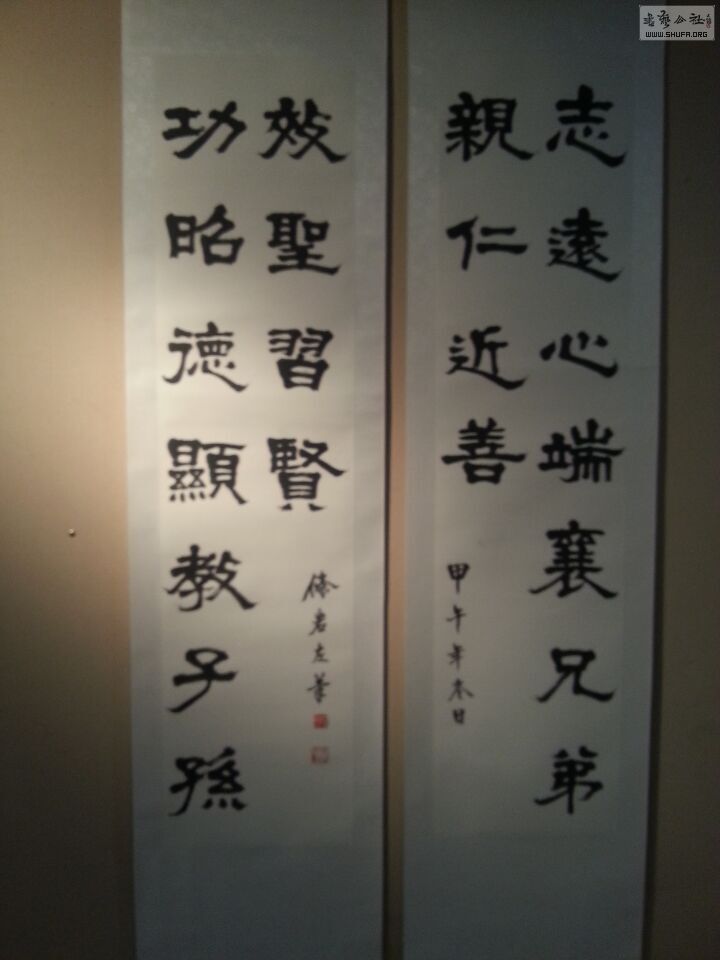 志遠心端襄兄弟
親仁近善
甲午年
功昭德顯教子孫
效聖習賢
左筆
書藝公社
WWW.SHUFA.ORG